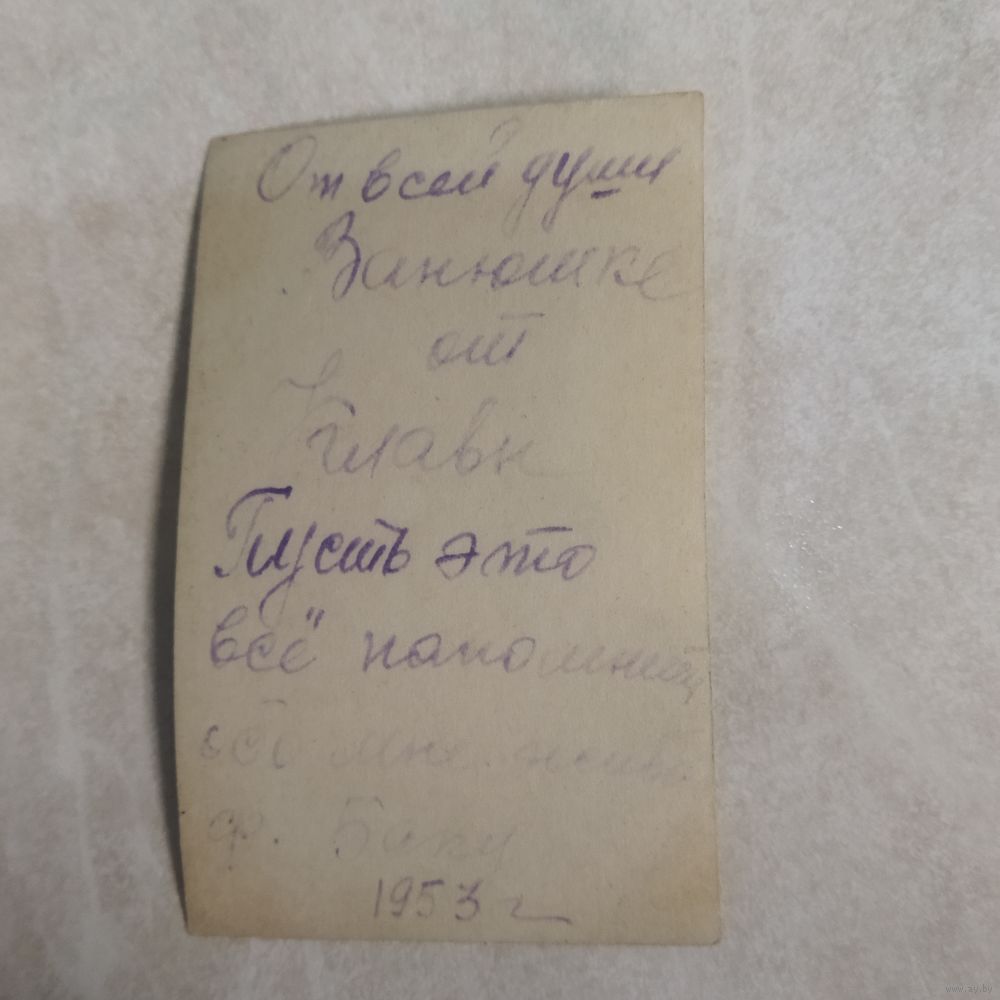 От всей души
Занюшке
от
Клавы
Пусть это
всё напомнит
всё мне
ф. Баку
1953 г
www.ay.by